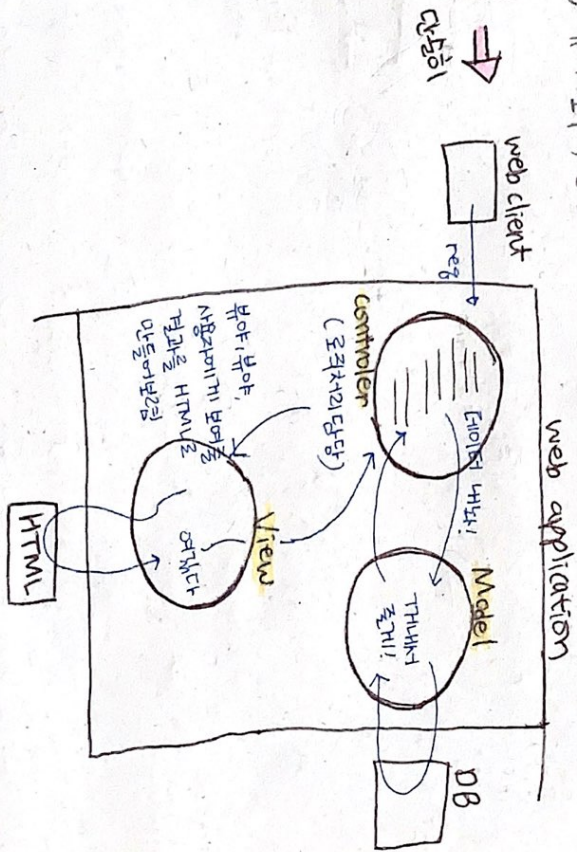 단순히
web client
req
web application
controler
(로직처리담당)
데이터 내놔!
Model
꺼내서
줄게!
DB
뷰야 뷰야,
사용자에게 보여줄
결과를 HTML로
만들어보렴
View
여깄다
HTML